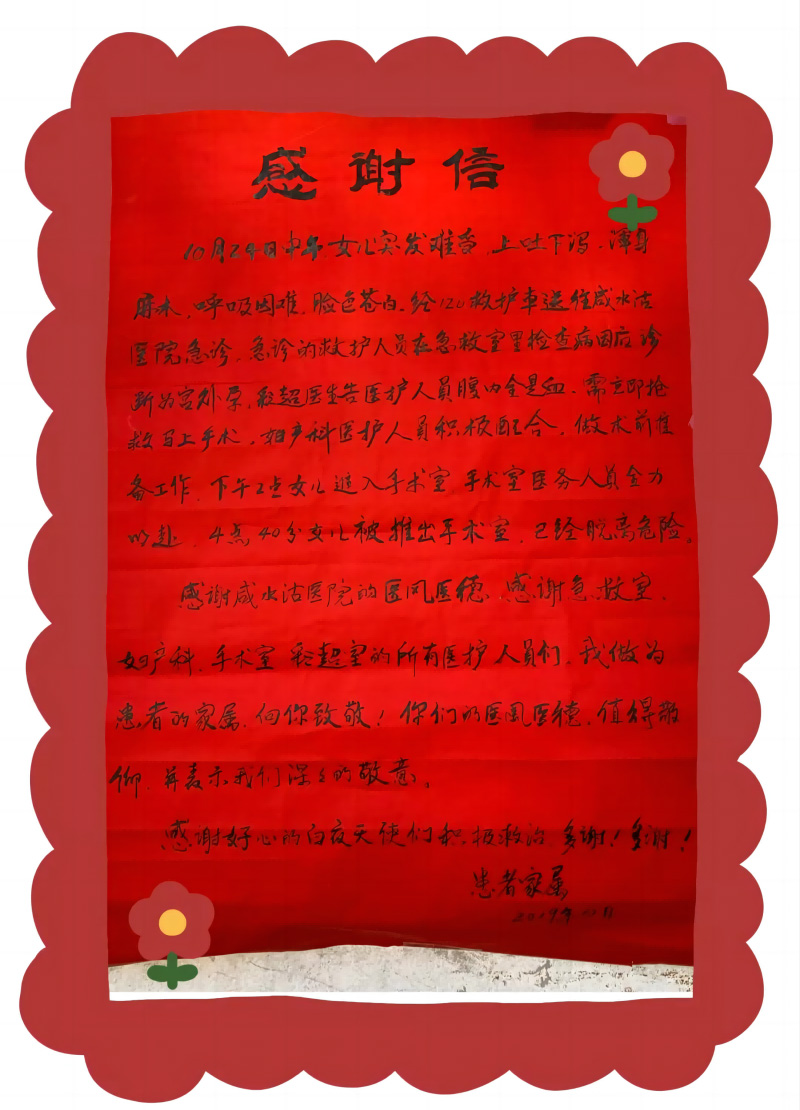 感谢信
10月24日中午,女儿突发难受,上吐下泻、浑身
麻木,呼吸困难,脸色苍白,经120救护车送往咸水沽
医院急诊。急诊的救护人员在急救室里检查病因应诊
断为宫外孕,彩超医生告医护人员腹内全是血,需立即抢
救马上手术,妇产科医护人员积极配合,做术前准
备工作,下午2点女儿进入手术室,手术室医务人员全力
以赴,4点40分女儿被推出手术室,已经脱离危险。
感谢咸水沽医院的医风医德,感谢急救室、
妇产科、手术室 彩超室的所有医护人员们,我做为
患者的家属,向你致敬!你们的医风医德,值得敬
仰,并表示我们深深的敬意。
感谢好心的白夜天使们积极救治,多谢!多谢!
患者家属
2019年11月